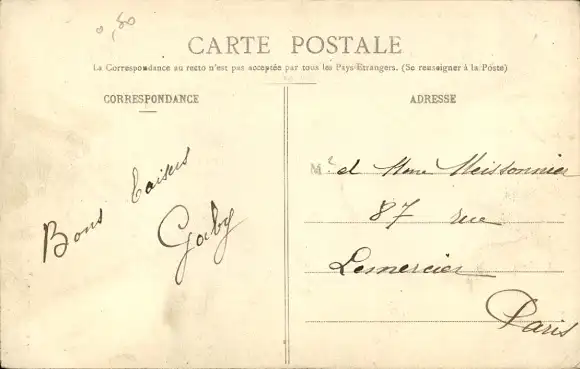 0,50
CARTE POSTALE
La Correspondance au recto n'est pas acceptée par tous les Pays Etrangers. (Se renseigner à la Poste)
CORRESPONDANCE
Bons baisers
Gaby
ADRESSE
Mr et Mme Meissonnier
87 rue
Lemercier
Paris